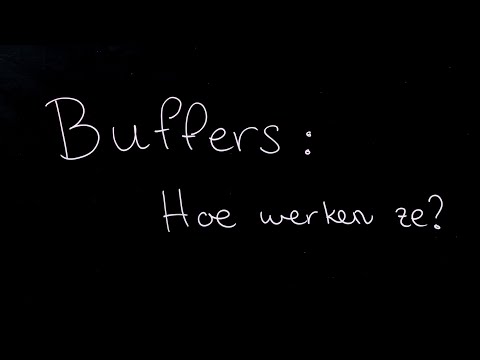 Buffers:
Hoe werken ze?